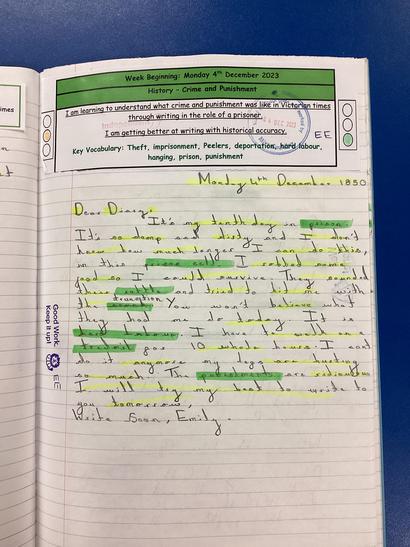 Week Beginning: Monday 4th December 2023
History - Crime and Punishment
I am learning to understand what crime and punishment was like in Victorian times
through writing in the role of a prisoner.
I am getting better at writing with historical accuracy.
EE
Key Vocabulary: Theft, imprisonment, Peelers, deportation, hard labour,
hanging, prison, punishment
imes
Monday 4th December 1850
Dear Diary,
It's my tenth day in prison.
It's so damp and dirty and I don't
know how much longer I can do this,
in this prison cell. I robbed some
food so I could survive. They sounded
there rattle and tried to hit me with
the truncheon. You won't believe what
they had me do today. It is
hard labour. I
for 10 whole hours. I cant
do it anymore my legs are hurting
so much. The punishments are ridiculous
I will try my best to write to
you tomorrow,
Write Soon, Emily.
Good Work,
Keep it up!
EE